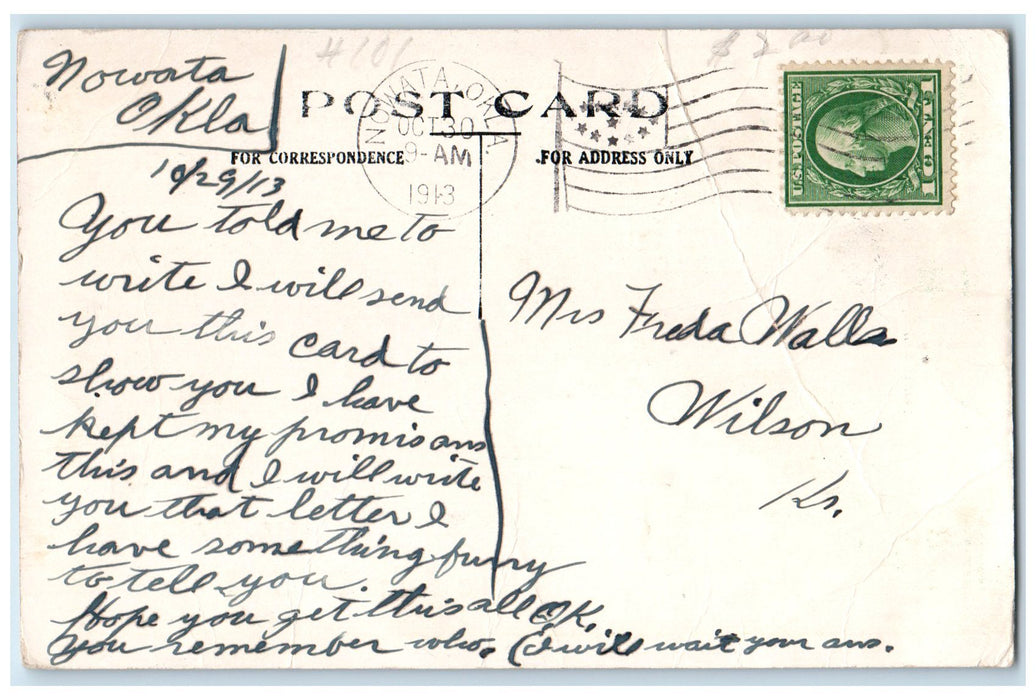 Nowata
Okla
#101
$2.00
POST CARD
NOWATA, OKLA
OCT 30
9-AM
1913
U.S. POSTAGE
1 CENT 1
FOR CORRESPONDENCE
FOR ADDRESS ONLY
10/29/13
You told me to
write I will send
you this card to
show you I have
kept my promis ans
this and I will write
you that letter I
have something funny
to tell you.
Hope you get this all O.K.
You remember who. (I will wait your ans.
Mrs Freda Walls
Wilson
Ks.